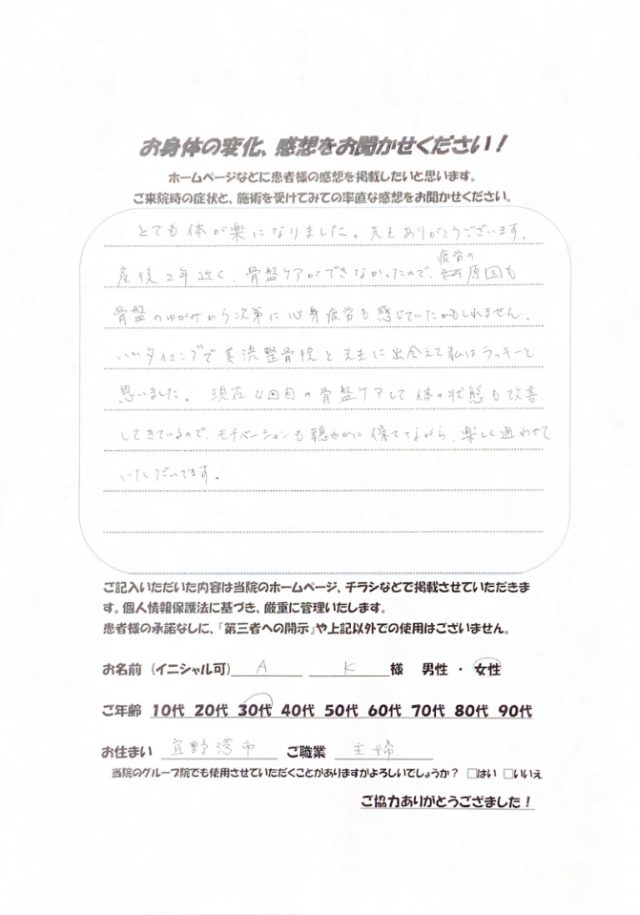 お身体の変化、感想をお聞かせください！
ホームページなどに患者様の感想を掲載したいと思います。
ご来院時の症状と、施術を受けてみての率直な感想をお聞かせください。
とても体が楽になりました。先生ありがとうございます。
産後2年近く、骨盤ケアができなかったので、疲労の原因も
骨盤のゆがみから次第に心身疲労も感じていたかもしれません。
いいタイミングで美流整骨院と先生に出会えて私はラッキーと
思いました。現在4回目の骨盤ケアして体の状態も改善
してきているので、モチベーションも穏やかに保てながら、楽しく通わせて
いただいてます。
ご記入いただいた内容は当院のホームページ、チラシなどで掲載させていただきま
す。個人情報保護法に基づき、厳重に管理いたします。
患者様の承諾なしに、「第三者への開示」や上記以外での使用はございません。
お名前（イニシャル可） A K 様 男性 ・ 女性
ご年齢 10代 20代 30代 40代 50代 60代 70代 80代 90代
お住まい 宜野湾市 ご職業 主婦
当院のグループ院でも使用させていただくことがありますがよろしいでしょうか？ □はい □いいえ
ご協力ありがとうござました！